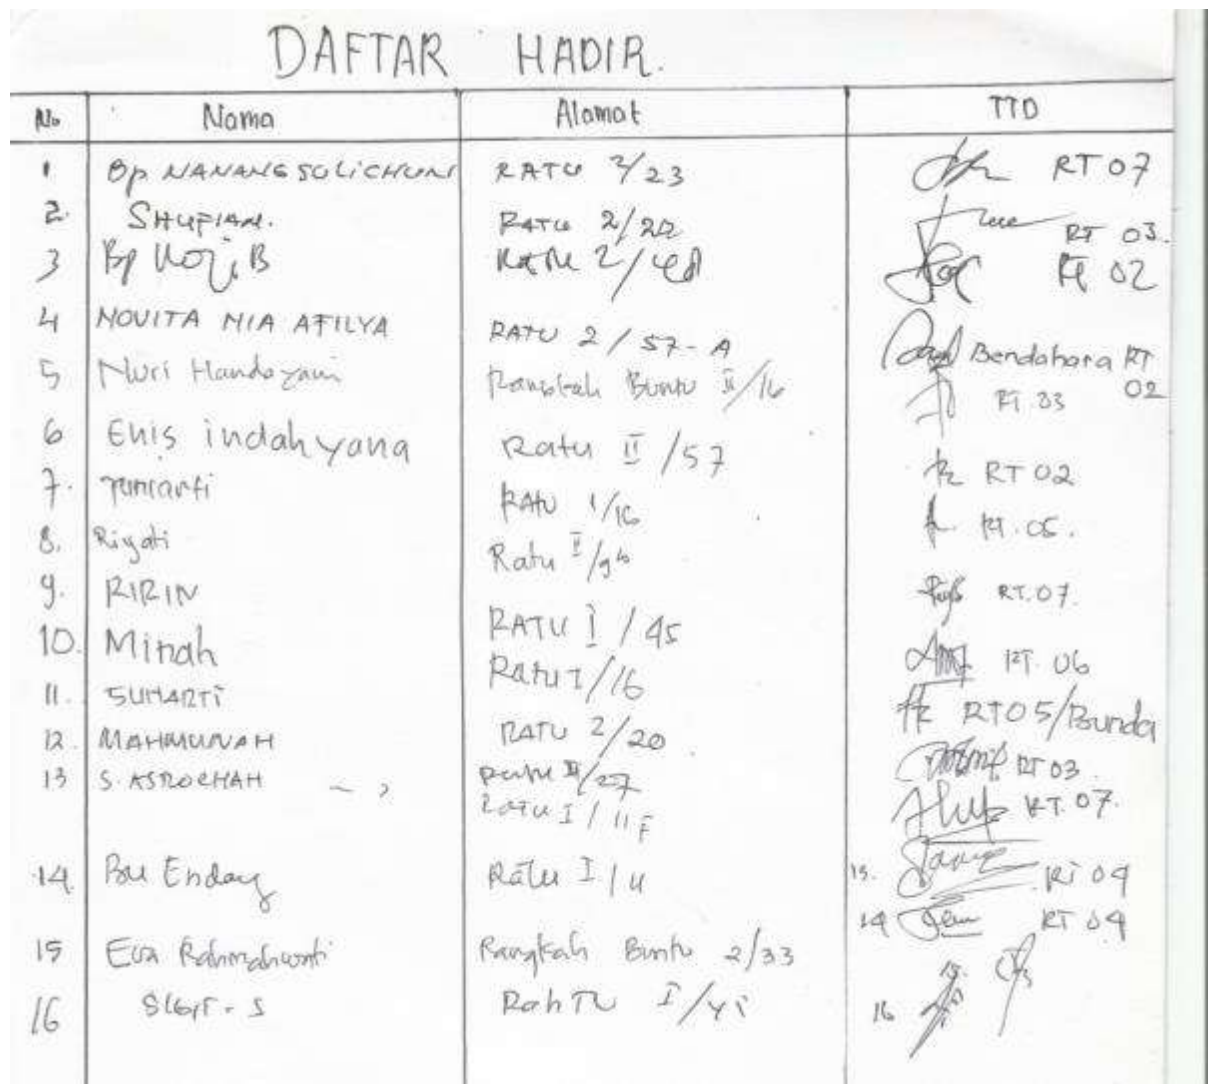 DAFTAR HADIR.
No Nama Alamat TTD
1 Bp NANANG SOLICHUN RATU 2/23 RT 07
2. SHUFIAH. RATU 2/20 RT 03.
3 Bp RATU 2/48 RT 02
4 NOVITA NIA AFILYA RATU 2/57-A Bendahara RT 02
5 Nuri Handayani Rangkah Buntu II/16 RT.03
6 Enis indahyana Ratu II/57 RT 02
7. RATU 1/16 RT.05.
8. Riyati Ratu
9. RIRIN RATU I/45 RT.07.
10. Minah Ratu I/16 RT.06
11. SUHARTI RATU 2/20 RT05/Bunda
12. MAHMUNAH RATU II/27 RT 03.
13 S. ASROCHAH Ratu I/11F RT.07.
14. Bu Endang Ratu I/11 13. RT 04
14 RT 04
15 Eva Rahmahwati Rangkah Buntu 2/33 15.
16 SIGIT.S RahTU 16